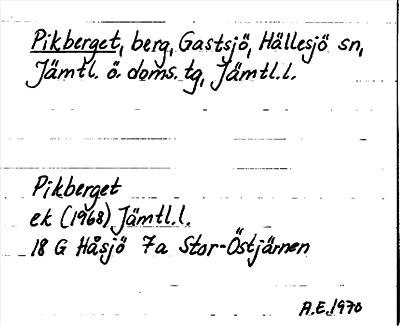 Pikberget, berg, Gastsjö, Hällesjö sn,
Jämtl. ö. doms. tg, Jämtl. l.
Pikberget
ek (1968) Jämtl. l.
18 G Håsjö 7a Stor-Östjärnen
A.E. 1970